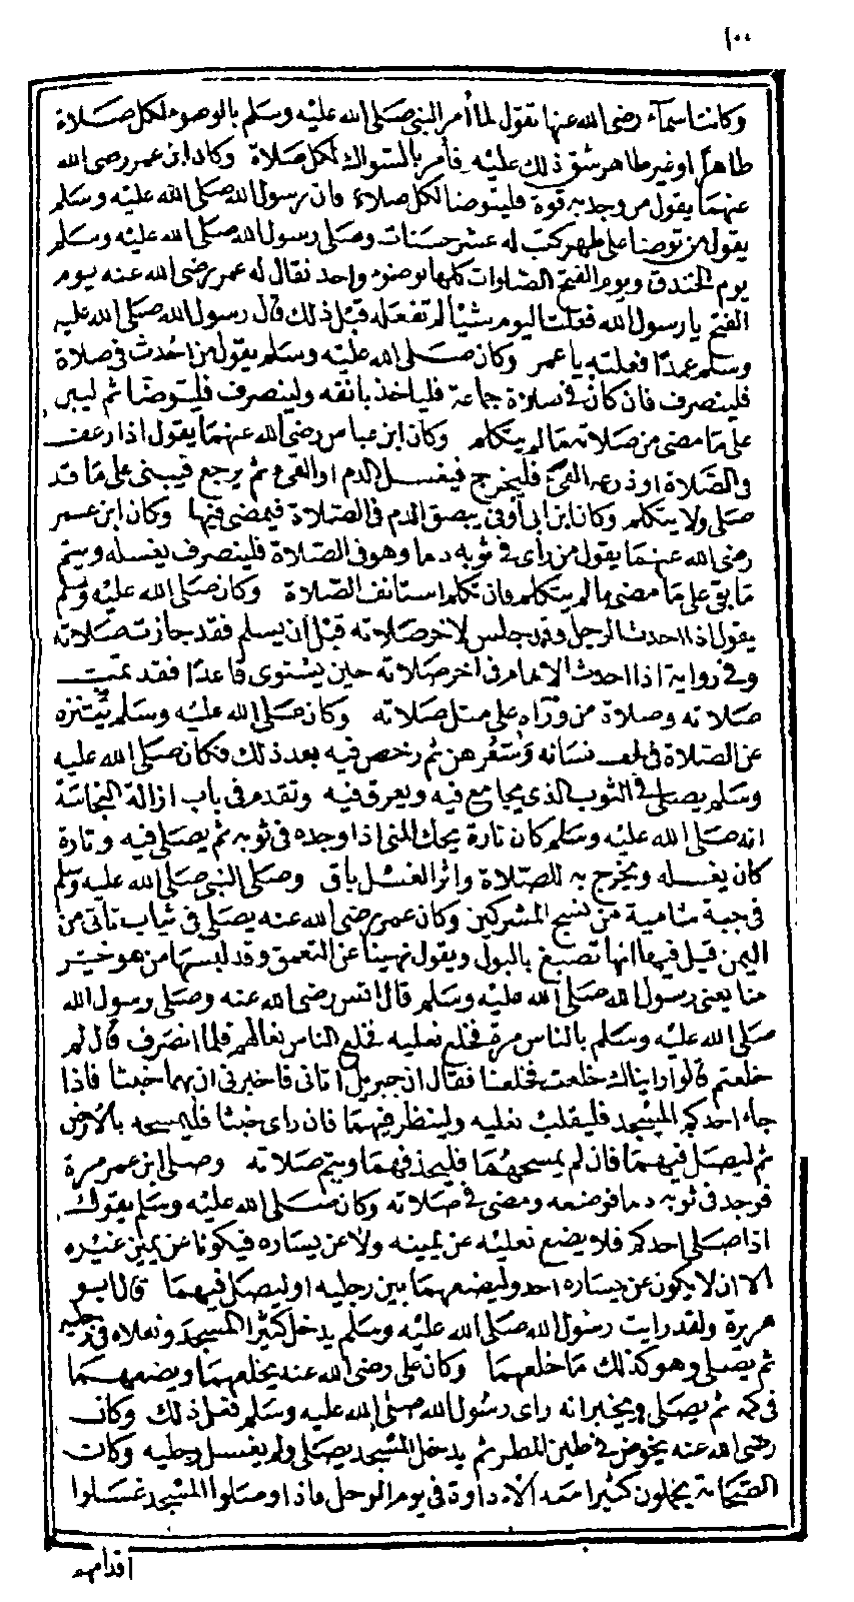 ١٠٠
وكانت اسماء رضى الله عنها تقول لما أمر النبى صلى الله عليه وسلم بالوضوء لكل صلاة
طاهرا او غير طاهر شق ذلك عليه فأمر بالسواك لكل صلاة وكان ابن عمر رضى الله
عنهما يقول من وجد به قوة فليتوضا لكل صلاة فان رسول الله صلى الله عليه وسلم
يقول من توضا على طهر كتب له عشر حسنات وصلى رسول الله صلى الله عليه وسلم
يوم الخندق ويوم الفتح الصلوات كلها بوضوء واحد فقال له عمر رضى الله عنه يوم
الفتح يا رسول الله فعلت اليوم شيئا لم تفعله قبل ذلك قال رسول الله صلى الله عليه
وسلم عمدا فعلته يا عمر وكان صلى الله عليه وسلم يقول من احدث فى صلاة
فلينصرف فان كان فى صلاة جماعة فلياخذ بانفه ولينصرف فليتوضا ثم ليبن
على ما مضى من صلاته ما لم يتكلم وكان ابن عباس رضى الله عنهما يقول اذا رعف
فى الصلاة او ذرعه القىء فليخرج فيغسل الدم او القىء ثم يرجع فيبنى على ما قد
صلى ولا يتكلم وكان ابن ابى أوفى يبصق الدم فى الصلاة فيمضى فيها وكان ابن عمر
رضى الله عنهما يقول من راى فى ثوبه دما وهو فى الصلاة فلينصرف يغسله ويتم
ما بقى على ما مضى ما لم يتكلم فان تكلم استانف الصلاة وكان صلى الله عليه وسلم
يقول اذا احدث الرجل وقد جلس لاخر صلاته قبل ان يسلم فقد جازت صلاته
وفى رواية اذا احدث الامام فى اخر صلاته حين يستوى قاعدا فقد تمت
صلاته وصلاة من وراه على مثل صلاته وكان صلى الله عليه وسلم يتنزه
عن الصلاة فى لحف نسائه وشعرهن ثم رخص فيه بعد ذلك فكان صلى الله عليه
وسلم يصلى فى الثوب الذى يجامع فيه ويعرق فيه وتقدم فى باب ازالة النجاسة
انه صلى الله عليه وسلم كان تارة يحك المنى اذا وجده فى ثوبه ثم يصلى فيه وتارة
كان يغسله ويخرج به للصلاة واثر الغسل باق وصلى النبى صلى الله عليه وسلم
فى جبة شامية من نسج المشركين وكان عمر رضى الله عنه يصلى فى ثياب تاتى من
اليمن قيل فيها انها تصبغ بالبول ويقول نهينا عن التعمق وقد لبسها من هو خير
منا يعنى رسول الله صلى الله عليه وسلم قال انس رضى الله عنه وصلى رسول الله
صلى الله عليه وسلم بالناس مرة فخلع نعليه فخلع الناس نعالهم فلما انصرف قال لم
خلعتم قالوا رايناك خلعت فخلعنا فقال ان جبريل اتانى فاخبرنى ان بهما خبثا فاذا
جاء احدكم المسجد فليقلب نعليه ولينظر فيهما فان راى خبثا فليمسحه بالارض
ثم ليصل فيهما فان لم يمسحهما فليخذفهما ويتم صلاته وصلى ابن عمر مرة
فوجد فى ثوبه دما فوضعه ومضى فى صلاته وكان صلى الله عليه وسلم يقول
اذا صلى احدكم فلا يضع نعليه عن يمينه ولا عن يساره فيكونا عن يمين غيره
الا ان لا يكون عن يساره احد وليضعهما بين رجليه او ليصل فيهما قال ابو
هريرة ولقد رايت رسول الله صلى الله عليه وسلم يدخل كثيرا المسجد ونعلاه فى رجليه
ثم يصلى وهو كذلك ما خلعهما وكان على رضى الله عنه يخلعهما ويضعهما
فى كمه ثم يصلى ويخبر انه راى رسول الله صلى الله عليه وسلم فعل ذلك وكان
رضى الله عنه يخوض فى طين المطر ثم يدخل المسجد يصلى ولم يغسل رجليه وكانت
الصحابة يحملون كثيرا معه الاداوة فى يوم الوحل فاذا وصلوا المسجد غسلوا
اقدامهم